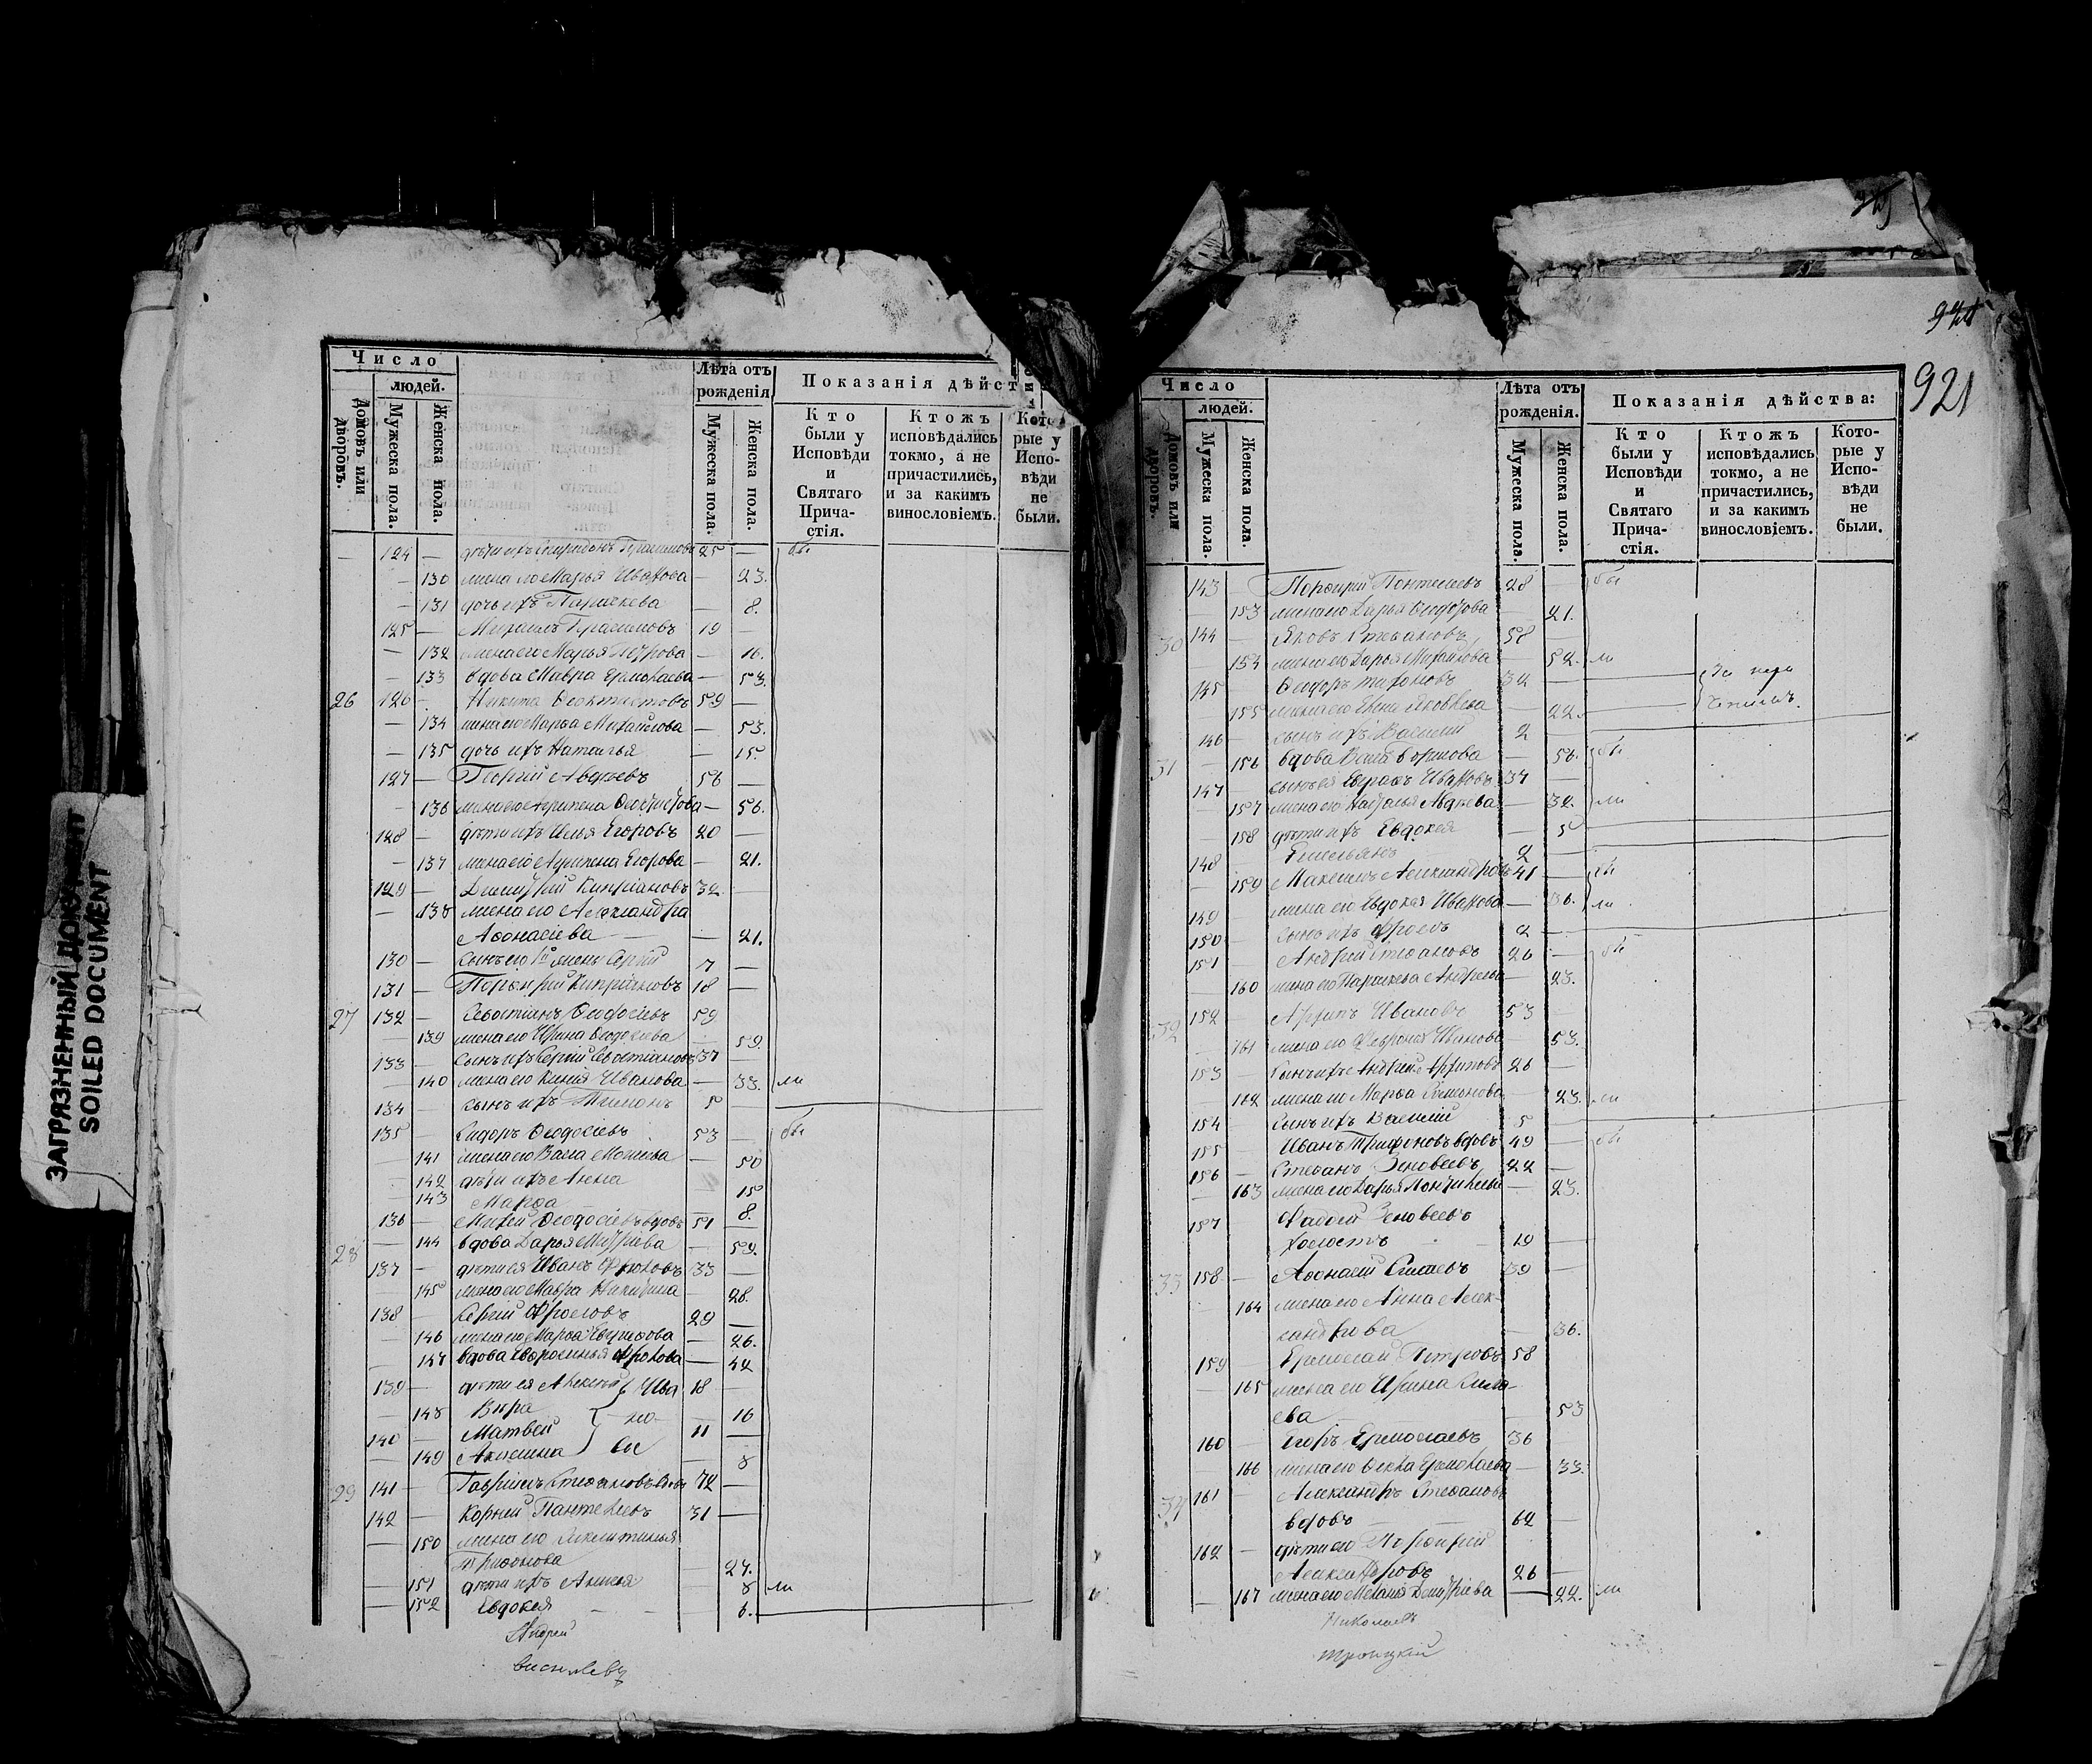 ЗАГРЯЗНЕННЫЙ ДОКУМЕНТ
SOILED DOCUMENT
Число
людей.
Домовъ или дворовъ.
Мужеска пола.
Женска пола.
Лѣта отъ рожденія
Мужеска пола.
Женска пола.
Показанія дѣйст
Кто были у Исповѣди и Святаго Прича-стія.
Ктожъ исповѣдались токмо, а не причастились, и за какимъ винословіемъ.
Кото-рые у Испо-вѣди не были.
124 — дѣти ихъ Спиридонъ Герасимовъ 25 — бы
— 130 жена его Марья Иванова — 23.
— 131 дочь ихъ Параскева — 8.
125 — Михаилъ Герасимовъ 19 —
— 132 жена его Марья Петрова — 16.
— 133 вдова Мавра Ермолаева — 53.
26 126 — Никита Феоктистовъ 59 —
— 134 жена его Марѳа Михайлова — 53.
— 135 дочь ихъ Наталья — 15.
127 — Георгій Авдѣевъ 56 —
— 136 жена его Агрипена — 56.
128 — дѣти ихъ Илья Егоровъ 20 —
— 137 жена его Агрипена Егорова — 21.
129 — Димитрій Кипріановъ 32 —
— 138 жена его Александра
Аѳонасіева — — 21.
130 — сынъ его Сергій 7 —
131 — Порфирій Кипріановъ 18 —
27 132 — Севостіанъ Ѳеодосіевъ 59 —
— 139 жена его Ирина Ѳеодосіева — 59.
133 — сынъ ихъ Сергій Севостіановъ 37 —
— 140 жена его Ксенія Иванова — 33. ли
134 — сынъ ихъ 5 —
135 — Сидоръ Ѳеодосіевъ 53 — бы
— 141 жена его Васса Моисеева — 50
— 142 дѣти ихъ Анна — 15
— 143 Марѳа — 8.
136 — Михей Ѳеодосіевъ вдовъ 51 —
28 — 144 вдова Дарья Дмитріева — 59.
137 — дѣти ея Иванъ Фроловъ 33 —
— 145 жена его Мавра Никитина — 28.
138 — Сергій Фроловъ 29 —
— 146 жена его Марѳа — 26.
— 147 вдова Евфросинья Фролова — 42
139 — дѣти ея Алексѣй } Ива 18 —
— 148 Вѣра } но — 16
140 — Матвей } вы 11 —
— 149 Акилина — 8
29 141 — Гавріилъ Стефановъ вдовъ 72 —
142 — Корнил Пантелеевъ 31 —
— 150 жена его
Трифонова — 27.
— 151 дѣти ихъ — 8 ли
— 152 Евдокея — 6.
Андрей
Васильевъ
921
Число
людей.
Домовъ или дворовъ.
Мужеска пола.
Женска пола.
Лѣта отъ рожденія.
Мужеска пола.
Женска пола.
Показанія дѣйства:
Кто были у Исповѣди и Святаго Прича-стія.
Ктожъ исповѣдались токмо, а не причастились, и за какимъ винословіемъ.
Кото-рые у Испо-вѣди не были.
143 — Порфирій Пантелеевъ 28 — бы
— 153 жена его Дарья Сидорова — 21.
30 144 — Яковъ Стефановъ 58 —
— 154 жена его Дарья Михайлова — 52. ли
145 — Ѳеодоръ Тихоновъ 32 —
— 155 жена его Яковлева — 22.
146 — сынъ ихъ Василий 2 —
31 — 156 вдова — 56. бы
147 — сынъ ея Иванов 37 —
— 157 жена его Наталья Авдѣева — 32. ли
— 158 дѣти ихъ Евдокея — 5
148 — Емельянъ 2 —
— 159 Максимъ Александровъ 41 — бы
149 — жена его Евдокея Иванова — 36. ли
150 — сынъ ихъ Фролъ 2 —
151 — Андрей Стефановъ 26 — бы
— 160 жена его Параскева Андреева — 23.
32 152 — Архипъ Ивановъ 53 —
— 161 жена его Феврония Иванова — 53.
153 — сынъ ихъ Андрей Архиповъ 26 —
— 162 жена его Марѳа Симонова — 23. ли
154 — сынъ ихъ Василий 5 —
155 — Иванъ Трифоновъ вдовъ 49 — бы
156 — Стефанъ Зеновеевъ 22 —
— 163 жена его Дарья — 23.
157 — Фаддей Зеновеевъ
холостъ 19 —
33 158 — Аѳонасий 39 —
— 164 жена его Анна Алек-
сандрова — 36.
159 — Ермолай Петровъ 58
— 165 жена его Ирина
ева — 53
160 — Егоръ Ермолаевъ 36 —
— 166 жена его Ѳекла Ермолаева — 33.
34 161 — Александръ Стефановъ
вдовъ — 62 —
162 — дѣти его Порфирий
Александровъ 26 —
— 167 жена его Меланія Дмитріева — 22. ли
Николаевъ
Троицкій